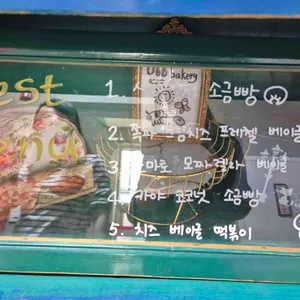 est
UBB bakery
1. 소금빵
2. 크림치즈 프레첼 베이글
3. 토마토 모짜렐라 베이글
4. 카야 코코넛 소금빵
5. 치즈 베이글 떡볶이